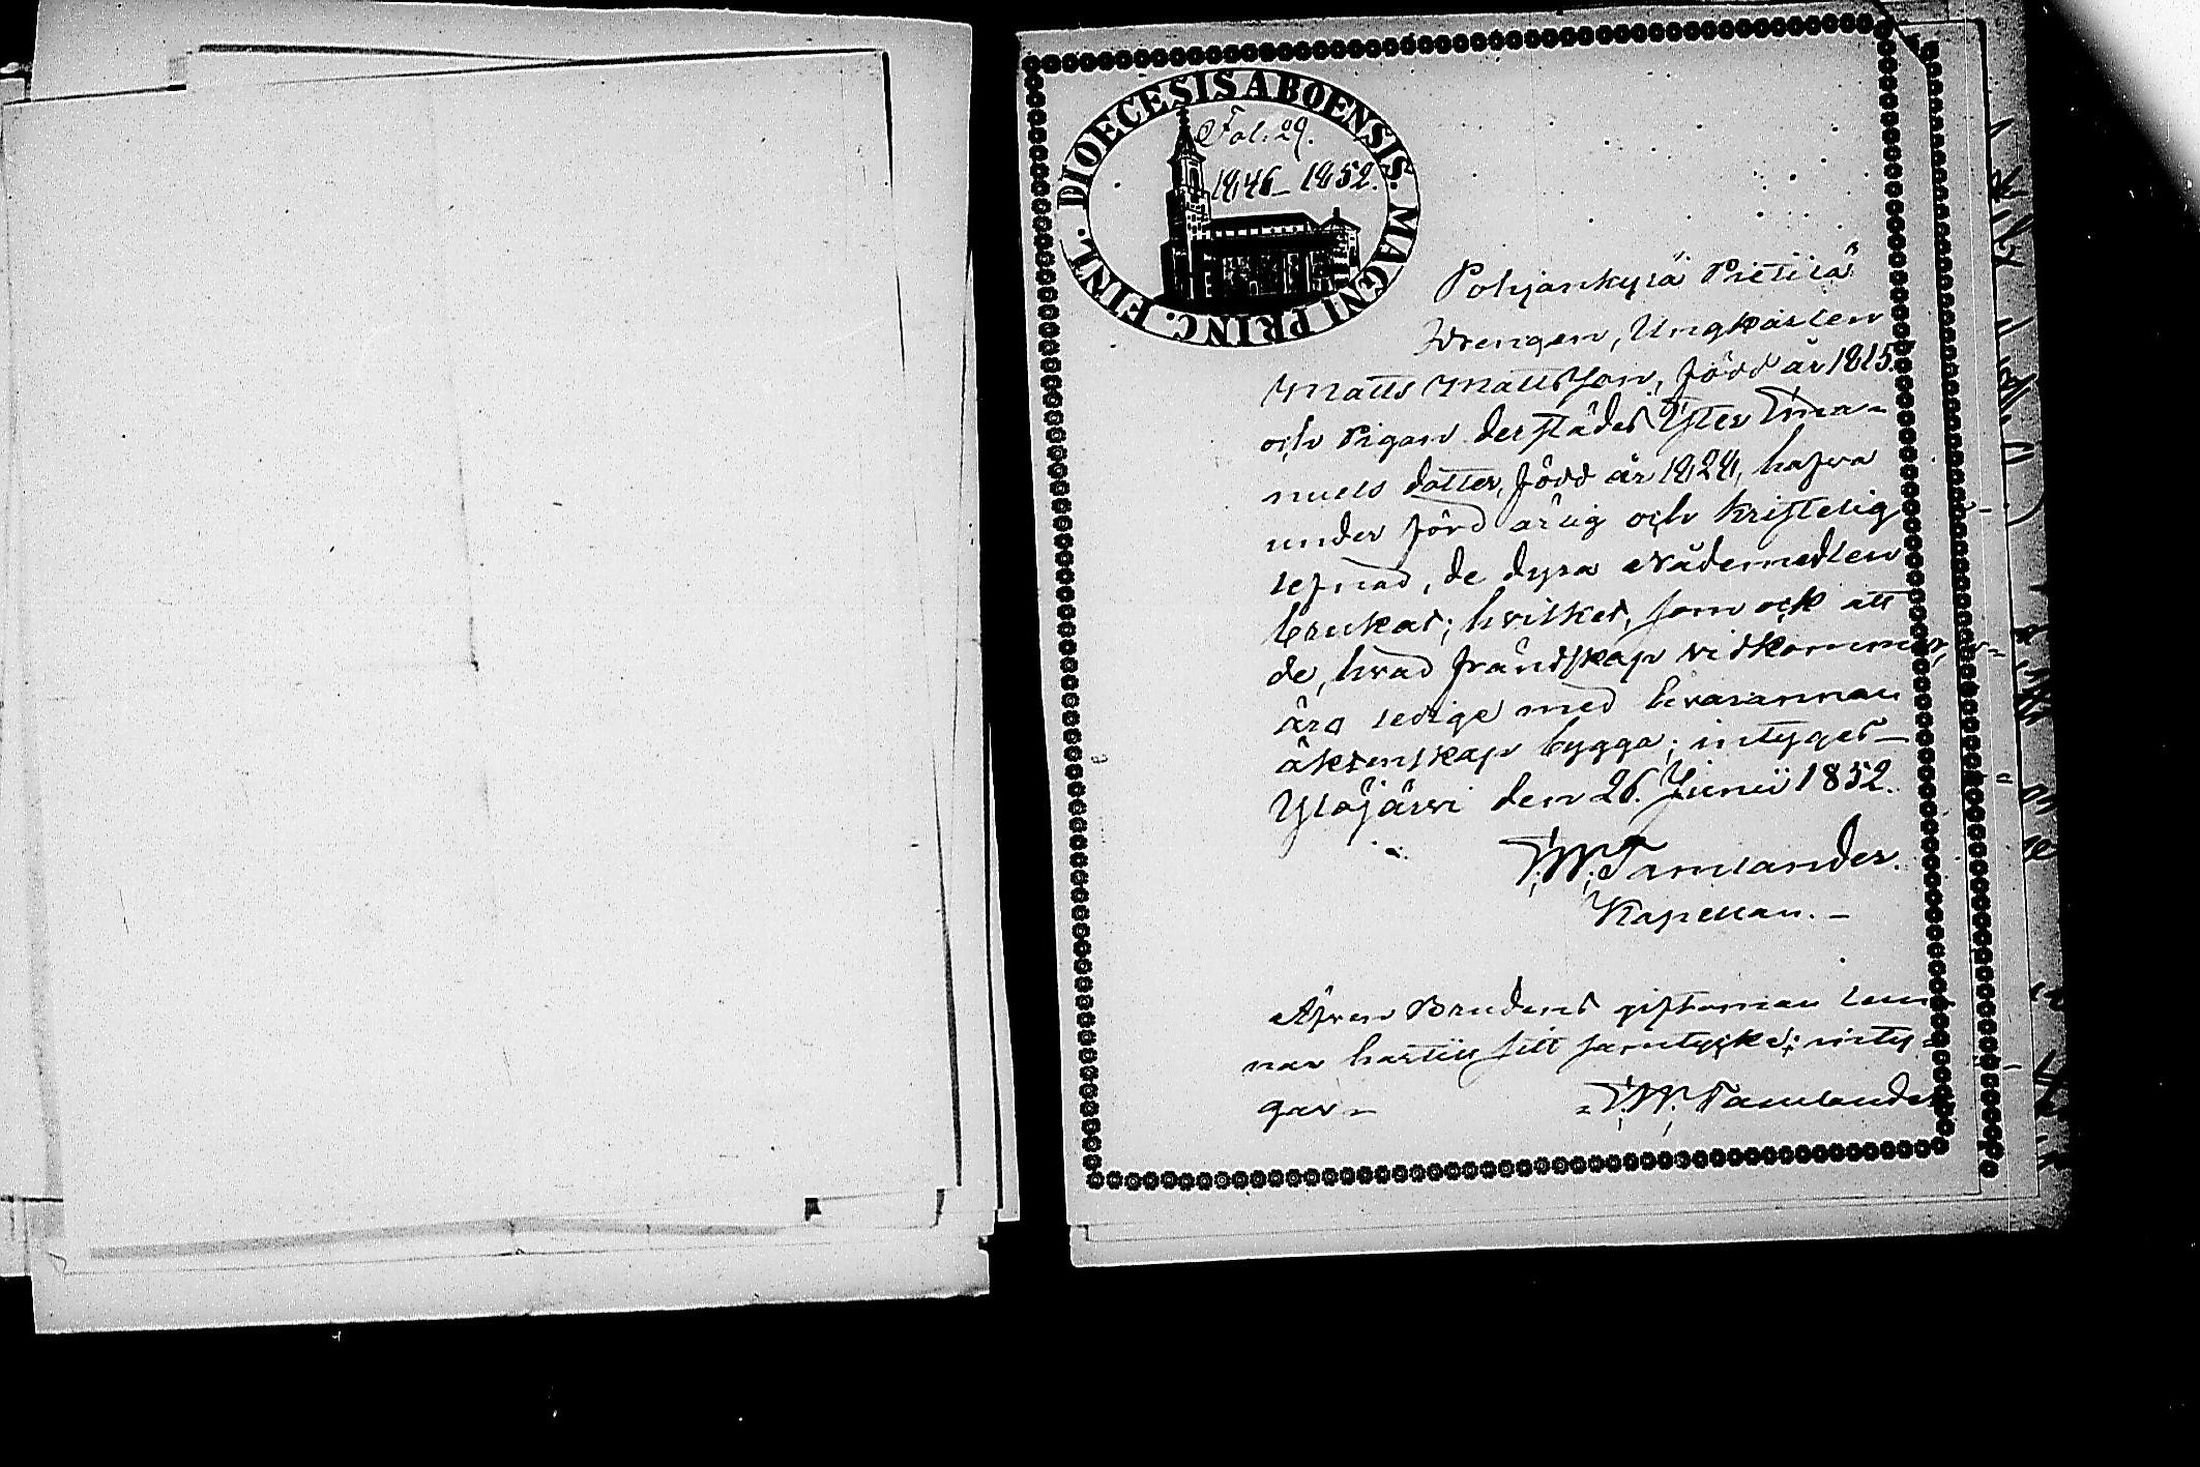 DIOECESIS ABOENSIS. MAGNI PRINC. FINL.
Fol. 29.
1846– 1852.
Pohjankylä Pietilä
Drengen, Ungkarlen
Matts Mattsson, född år 1815.
och Pigan derstädes Ester Ema-
nuels dotter, född år 1824, hafva
under förd ärlig och kristelig
lefnad, de dyra nådemedlen
brukat; hvilket, som ock att
de, hvad frändskap vidkommer,
äro ledige med hvarannan
äktenskap bygga; intyges–
Ylöjärvi den 26. Junii 1852.
Tamlander.
Kapellan. –
Äfven Brudens giftoman lem-
nar härtill sitt samtycke; inty-
gar –
Tamlander